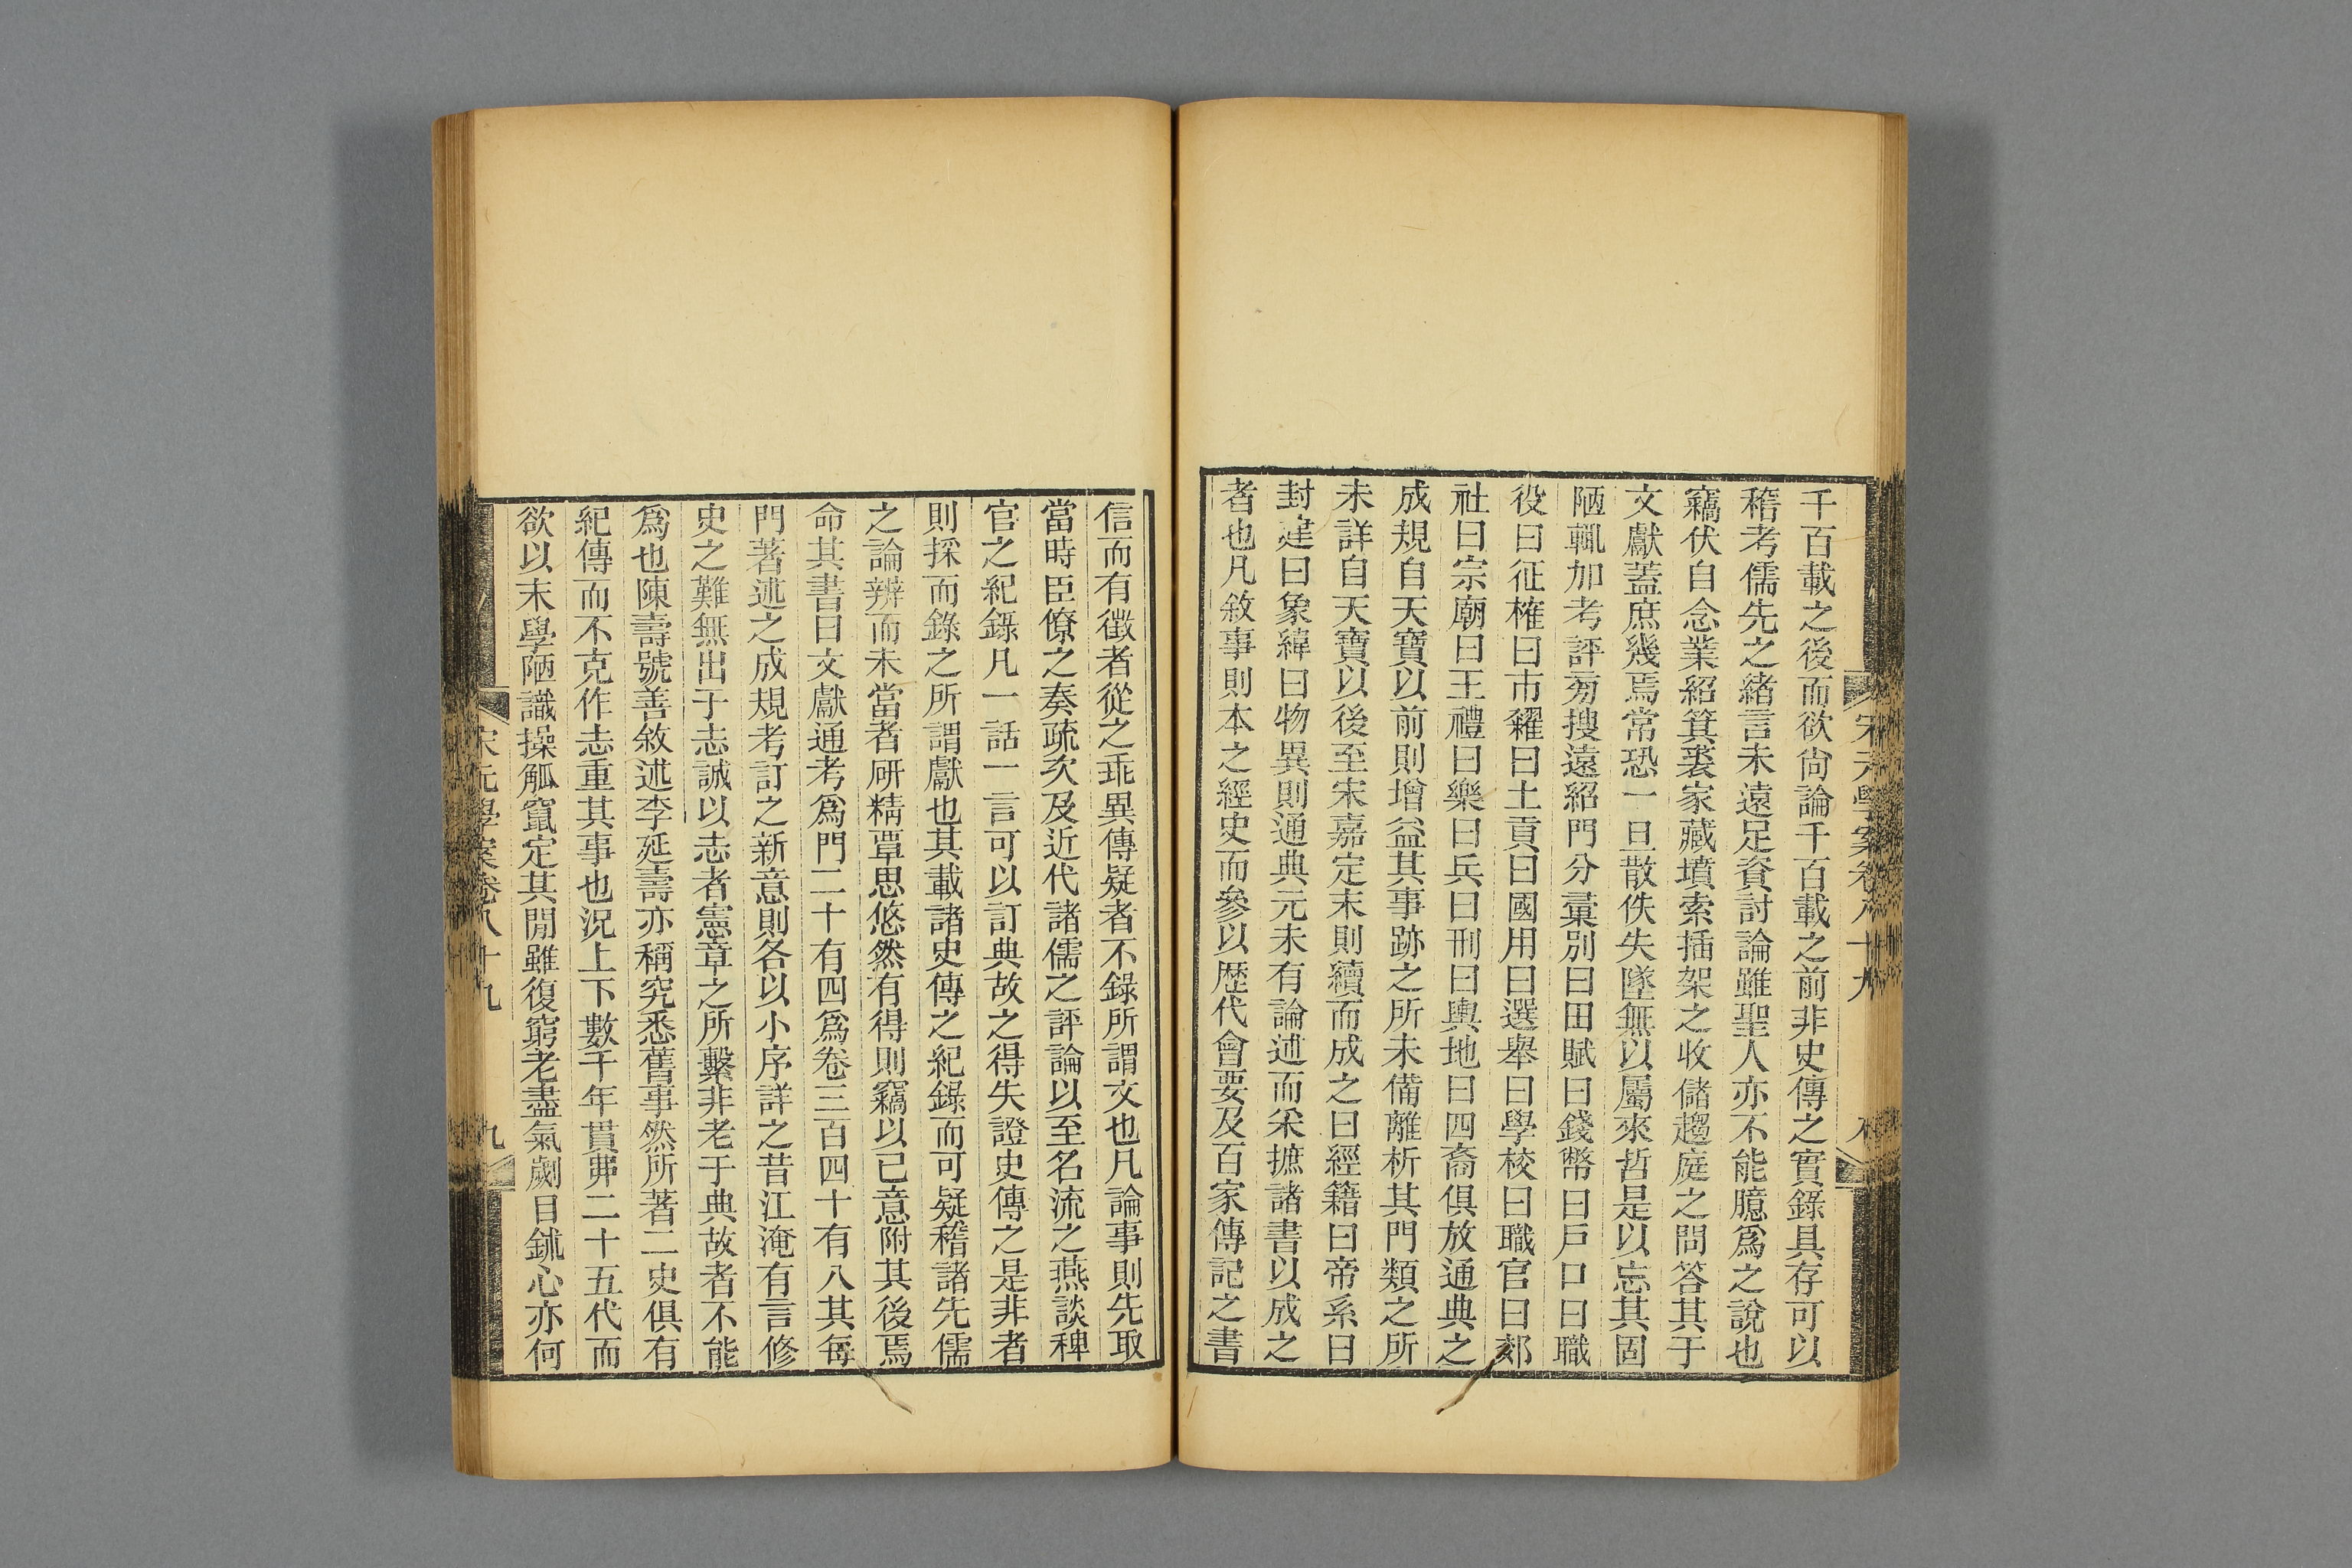 宋元學案卷八十九
千百載之後而欲尙論千百載之前非史傳之實錄具存可以
稽考儒先之緒言未遠足資討論雖聖人亦不能臆爲之說也
竊伏自念業紹箕裘家藏墳索插架之收儲趨庭之問答其于
文獻蓋庶幾焉常恐一旦散佚失墜無以屬來哲是以忘其固
陋輒加考評旁搜遠紹門分彙別曰田賦曰錢幣曰戶口曰職
役曰征榷曰市糴曰土貢曰國用曰選舉曰學校曰職官曰郊
社曰宗廟曰王禮曰樂曰兵曰刑曰輿地曰四裔俱放通典之
成規自天寶以前則增益其事跡之所未備離析其門類之所
未詳自天寶以後至宋嘉定末則續而成之曰經籍曰帝系曰
封建曰象緯曰物異則通典元未有論述而采摭諸書以成之
者也凡敘事則本之經史而參以歷代會要及百家傳記之書
信而有徵者從之乖異傳疑者不錄所謂文也凡論事則先取
當時臣僚之奏疏次及近代諸儒之評論以至名流之燕談稗
官之紀錄凡一話一言可以訂典故之得失證史傳之是非者
則採而錄之所謂獻也其載諸史傳之紀錄而可疑稽諸先儒
之論辨而未當者研精覃思悠然有得則竊以已意附其後焉
命其書曰文獻通考爲門二十有四爲卷三百四十有八其每
門著述之成規考訂之新意則各以小序詳之昔江淹有言修
史之難無出于志誠以志者憲章之所繫非老于典故者不能
爲也陳壽號善敘述李延壽亦稱究悉舊事然所著二史俱有
紀傳而不克作志重其事也況上下數千年貫串二十五代而
欲以末學陋識操觚竄定其閒雖復窮老盡氣劌目鉥心亦何
宋元學案卷八十九
九